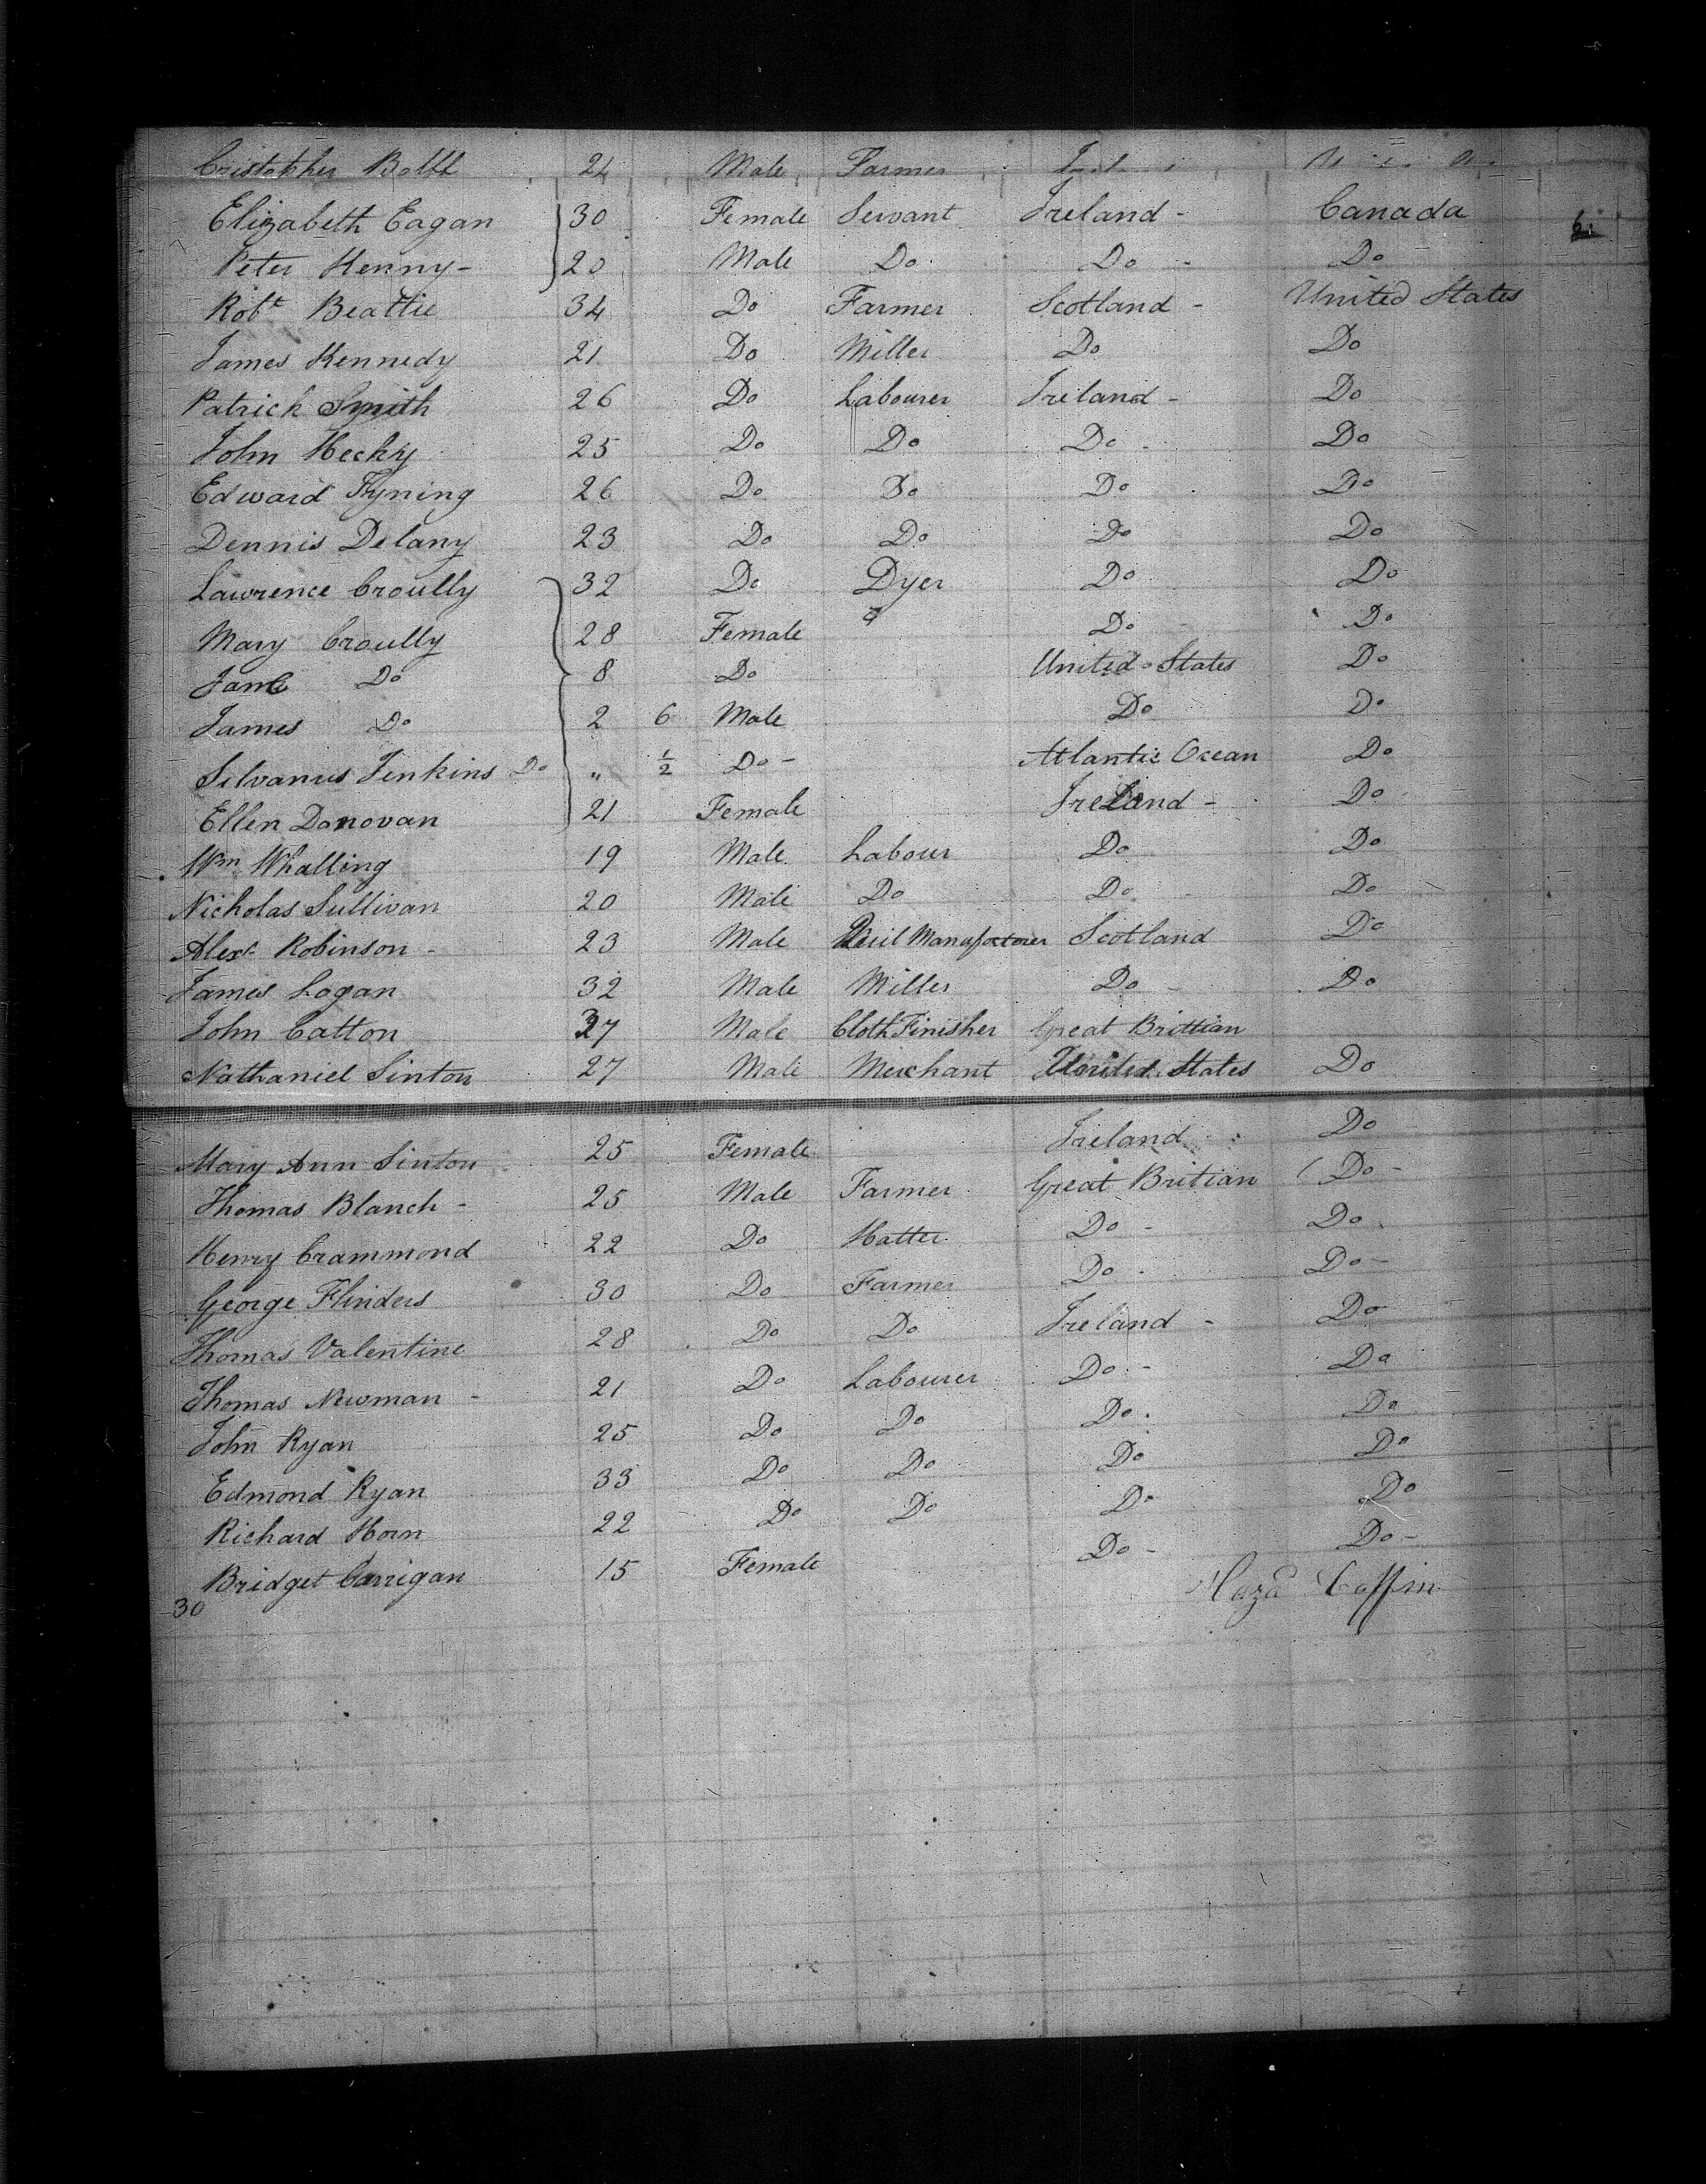 Cristopher 24 Male Farmer
Elizabeth Eagan 30 Female Servant Ireland - Canada
Peter Kenny - 20 Male Do Do - Do
Robt Beattie 34 Do Farmer Scotland - United States
James Kennedy 21 Do Miller Do Do
Patrick Smith 26 Do Labourer Ireland - Do
John Hecky 25 Do Do Do Do
Edward Tyning 26 Do Do Do Do
Dennis Delany 23 Do Do Do Do
Lawrence Croully 32 Do Dyer Do Do
Mary Croully 28 Female Do Do
Jane Do 8 Do United States Do
James Do 2 6 Male Do Do
Silvanus Jenkins Do " 1/2 Do - Atlantic Ocean Do
Ellen Donovan 21 Female Ireland - Do
Wm Whalling 19 Male Labour Do Do
Nicholas Sullivan 20 Male Do Do Do
Alexr Robinson - 23 Male Manufactourer Scotland Do
James Logan 32 Male Miller Do - Do
John Catton 37 Male Cloth Finisher Great Brittian
Nathaniel Sinton 27 Male Merchant United States Do
Mary Ann Sinton 25 Female Ireland Do
Thomas Blanch - 25 Male Farmer Great Britian Do -
Henry Crammond 22 Do Hatter Do - Do
George Flinders 30 Do Farmer Do Do -
Thomas Valentine 28 Do Do Ireland - Do
Thomas Newman - 21 Do Labourer Do - Do
John Ryan 25 Do Do Do Do
Edmond Ryan 33 Do Do Do Do
Richard Horn 22 Do Do Do Do
Bridget Carrigan 15 Female Do - Do -
30 Coffin